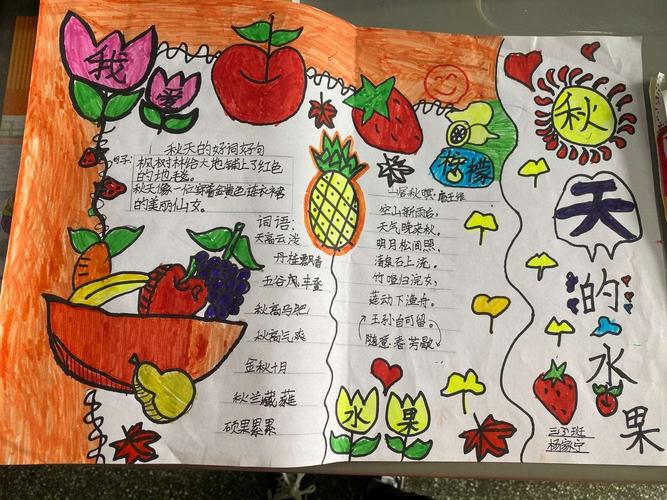 我
爱
秋天的好词好句
句子:枫树林给大地铺上了红色
的地毯。
秋天像一位穿着金黄色连衣裙
的美丽仙女。
词语:
天高云淡
丹桂飘香
五谷丰登
秋高马肥
秋高气爽
金秋十月
秋兰葳蕤
硕果累累
柠檬
山居秋暝·唐王维
空山新雨后,
天气晚来秋。
明月松间照,
清泉石上流。
竹喧归浣女,
莲动下渔舟。
王孙自可留。
随意春芳歇,
水
果
秋
天
的
水
果
班
杨家宁